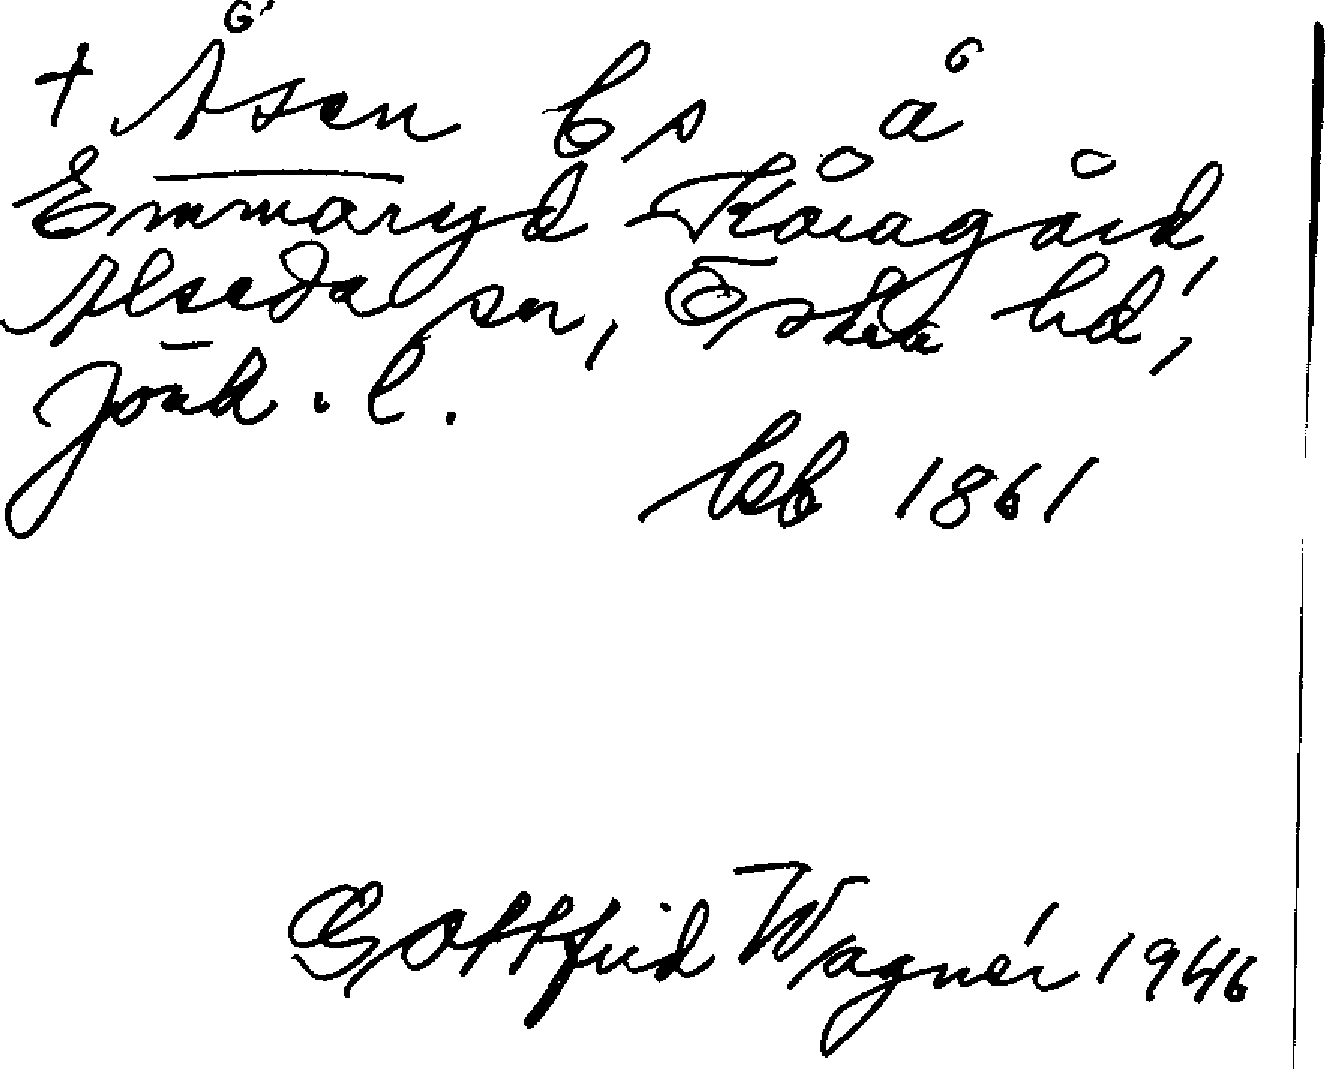 + Åsen bs å
Emmaryd Kåragård
Alseda sn, Östra hd,
Jönk. l.
lsb 1861
Gottfrid Wagnér 1946